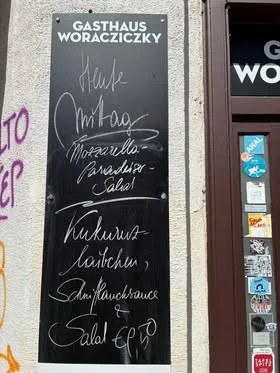 GASTHAUS
WORACZICZKY
Heute
Mittag
Mozzarella-
Paradeiser-
Salat
Kukuruz-
laibchen,
Schnittlauchsauce
&
Salat
G
WO